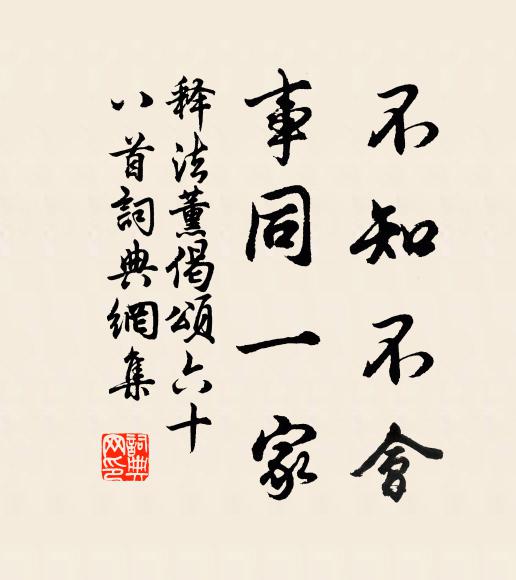 不知不會
事同一家
释法薰偈頌六十
八首詞典網集
詞典网印